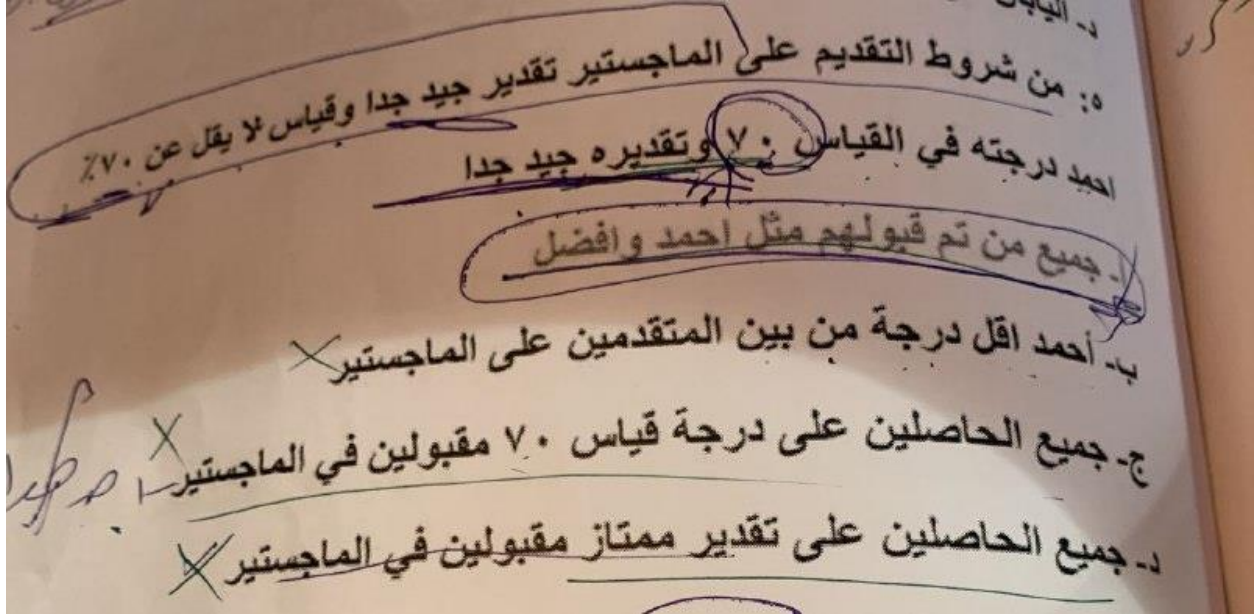 د- اليابان
٥: من شروط التقديم على الماجستير تقدير جيد جدا وقياس لا يقل عن ٧٠٪
احمد درجته في القياس ٧٠ وتقديره جيد جدا
أ- جميع من تم قبولهم مثل احمد وافضل
ب- أحمد اقل درجة من بين المتقدمين على الماجستير
ج- جميع الحاصلين على درجة قياس ٧٠ مقبولين في الماجستير
د- جميع الحاصلين على تقدير ممتاز مقبولين في الماجستير